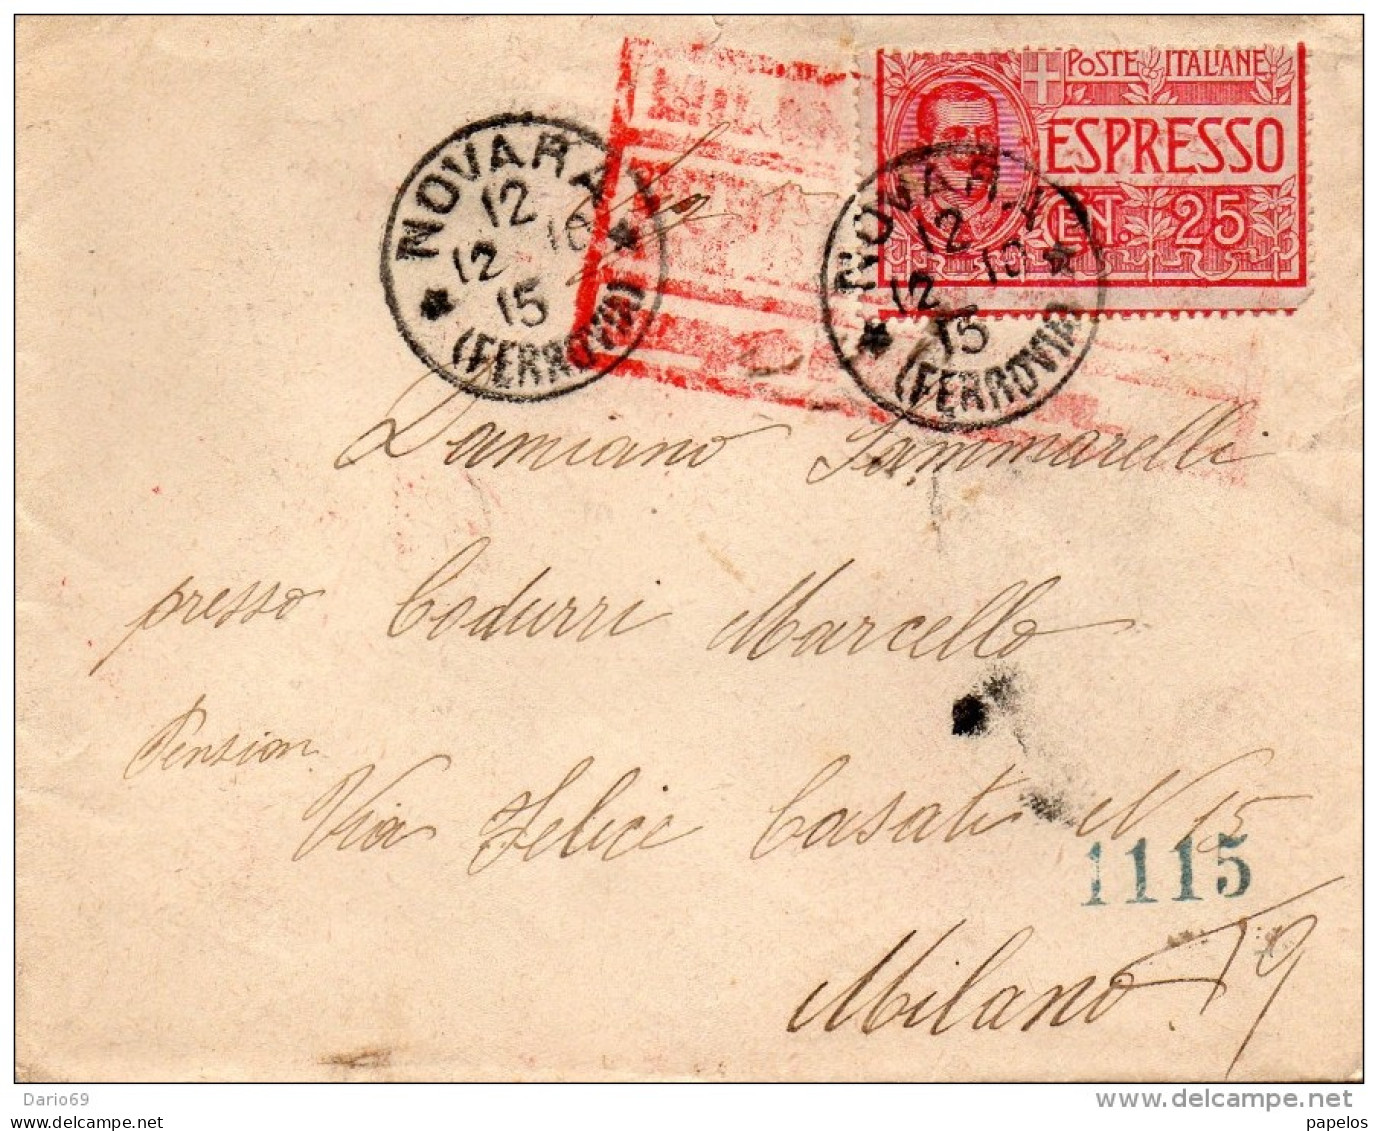 POSTE ITALIANE
ESPRESSO
CENT. 25
NOVARA
12
12 10
15
(FERROVIA)
NOVARA
12
12 10
15
(FERROVIA)
Damiano Sammarelli
presso Codurri Marcello
Pension
Via Felice Casati N 15
1115
Milano
19
Dario69
www.delcampe.net
papelos